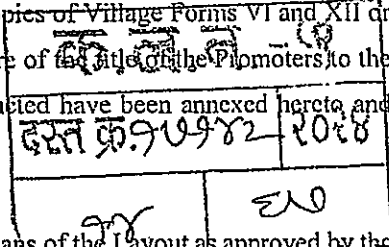 pies of Village Forms VI and XII or
क. ल. न. -
e of the Title of the Promoters to the
acted have been annexed hereto and
दस्त क्र. १५१४२ २०१४
ans of the Layout as approved by the